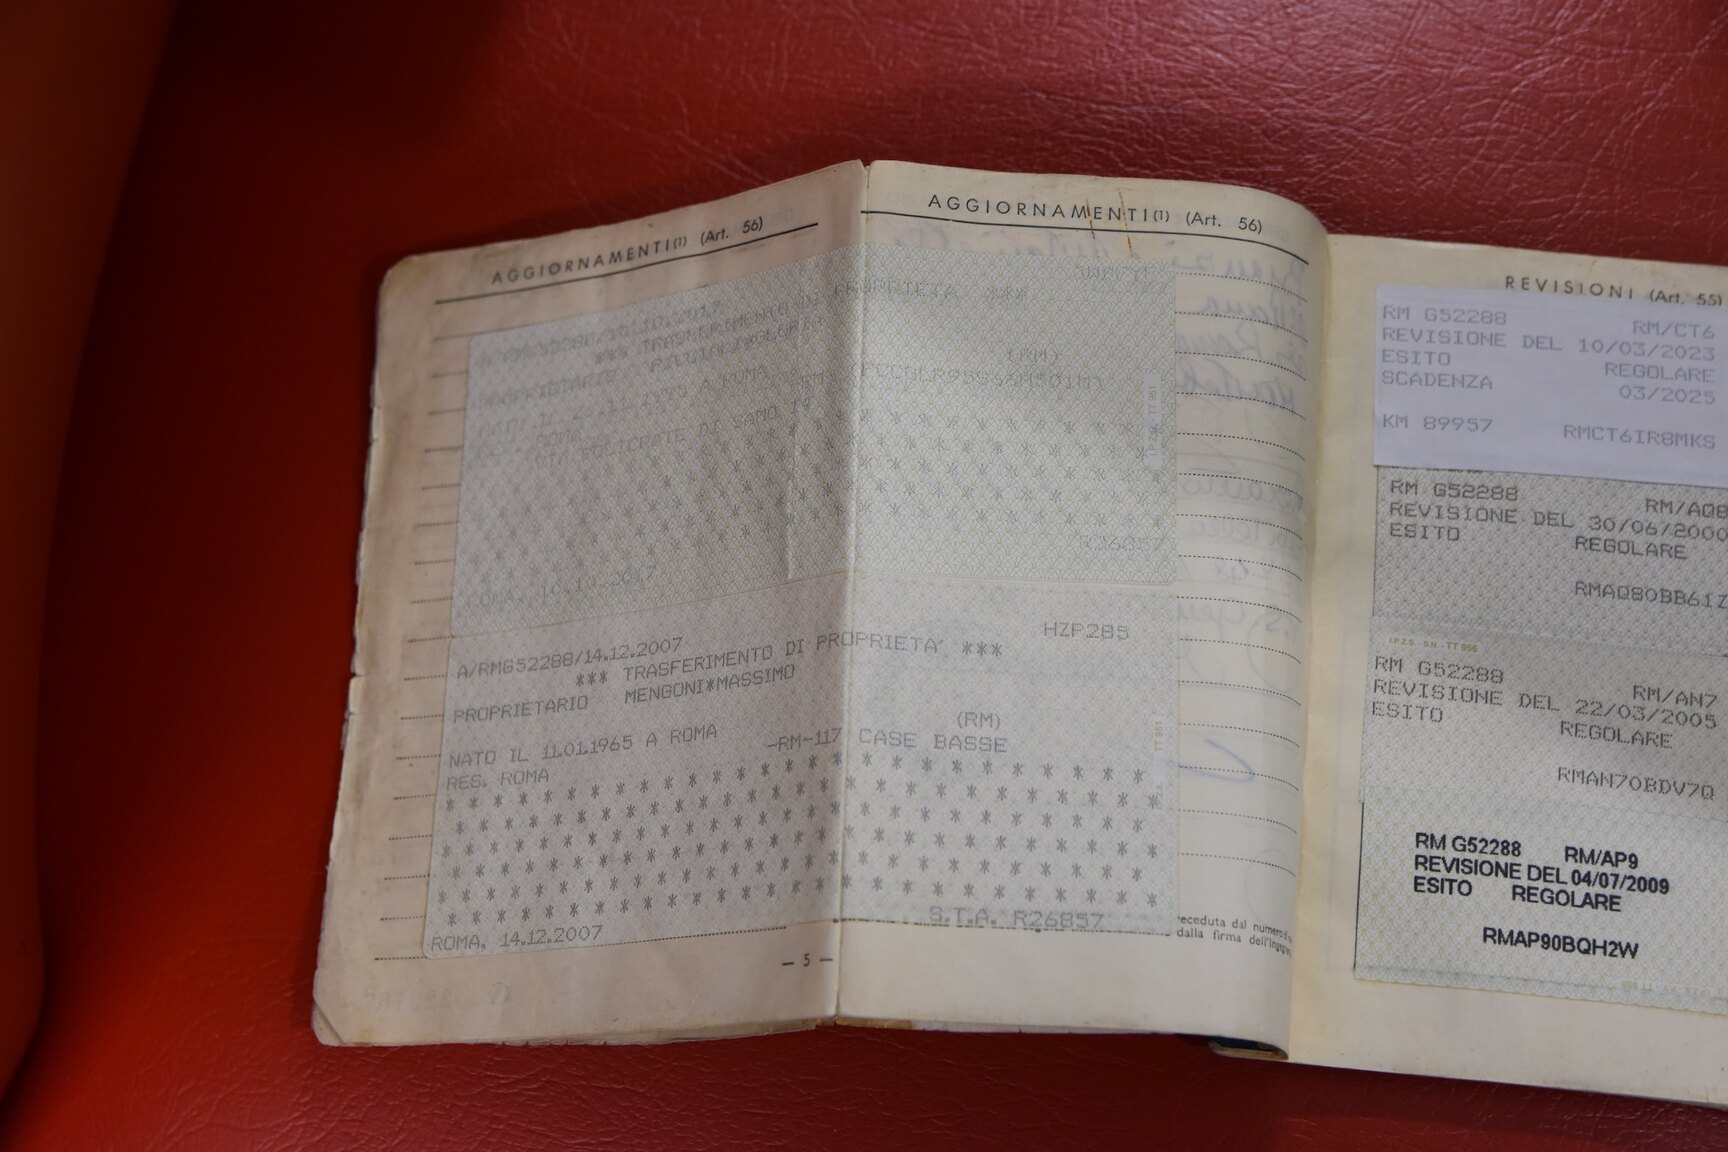 AGGIORNAMENTI(1) (Art. 56)
*** TRASFERIMENTO DI PROPRIETA' ***
(RM)
A ROMA
VIA POLICRATE DI SAMO 14
R26857
ROMA, 10.10.2017
A/RMG52288/14.12.2007 HZP285
*** TRASFERIMENTO DI PROPRIETA' ***
PROPRIETARIO MENGONI*MASSIMO
NATO IL 11.01.1965 A ROMA (RM)
RES. ROMA -RM-117 CASE BASSE
ROMA, 14.12.2007 S.T.A. R26857
— 5 —
AGGIORNAMENTI(1) (Art. 56)
I.P.Z.S. TT 951
TT 951
receduta dal numero
dalla firma dell'Ingegn
REVISIONI (Art. 55)
RM G52288 RM/CT6
REVISIONE DEL 10/03/2023
ESITO REGOLARE
SCADENZA 03/2025
KM 89957 RMCT6IR8MKS
RM G52288 RM/AQ8
REVISIONE DEL 30/06/2000
ESITO REGOLARE
RMAQ80BB61Z
I.P.Z.S. - S.N. - TT 956
RM G52288 RM/AN7
REVISIONE DEL 22/03/2005
ESITO REGOLARE
RMAN70BDV7Q
RM G52288 RM/AP9
REVISIONE DEL 04/07/2009
ESITO REGOLARE
RMAP90BQH2W